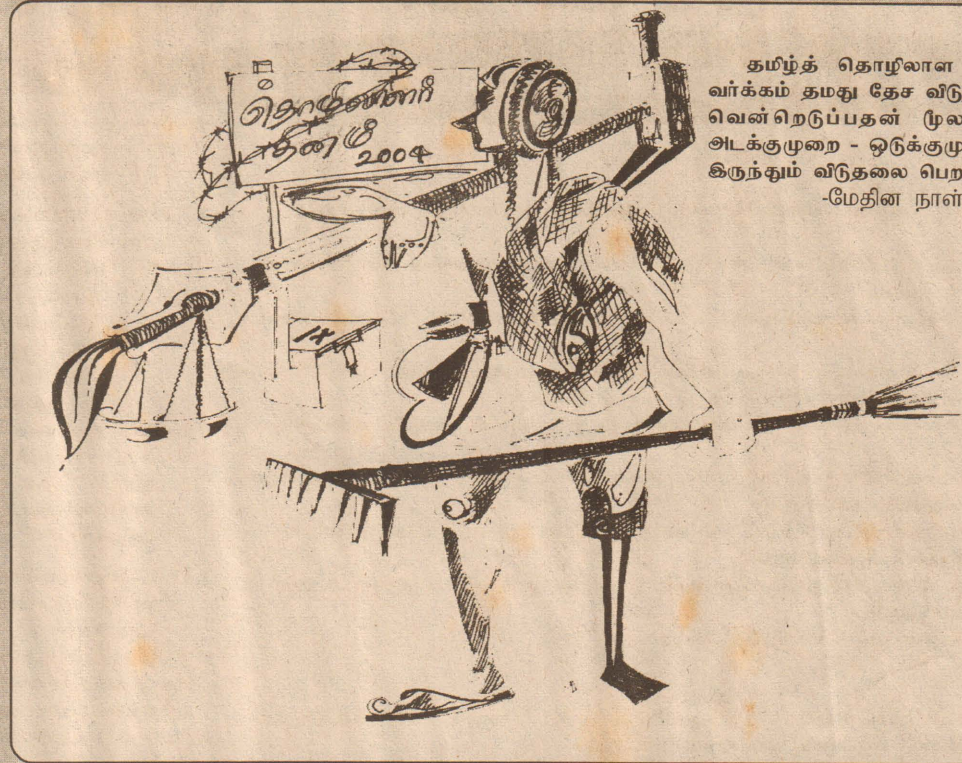 தொழிலாளர்
தினம்
2004
தமிழ்த் தொழிலாள
வர்க்கம் தமது தேச விடு
வென்றெடுப்பதன் மூல
அடக்குமுறை - ஒடுக்குமு
இருந்தும் விடுதலை பெற
-மேதின நாள்